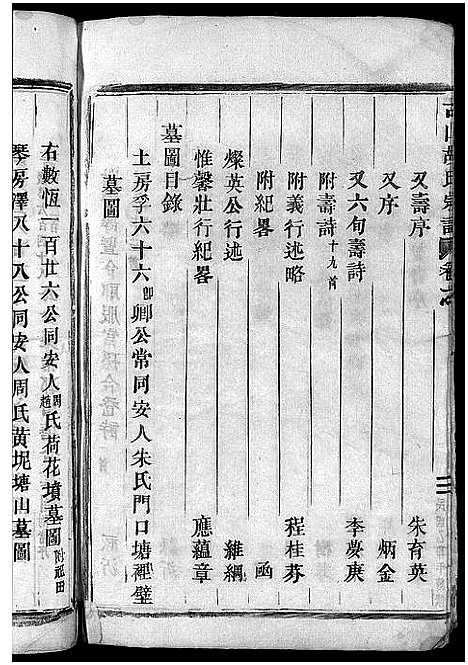 又壽序 朱育英
又序 炳金
又六旬壽詩 李夢庚
附壽詩十九首
附義行述略 程桂芬
附紀畧 函
燦英公行述 維綱
惟馨壯行紀畧 應蘊章
墓圖目錄
土房孚六十六即卿公常同安人朱氏門口塘裡壁
墓圖
右數恆一百廿六公同安人周趙氏荷花墳墓圖附祀田
琴房澤八十八公同安人周氏黄坭塘山墓圖